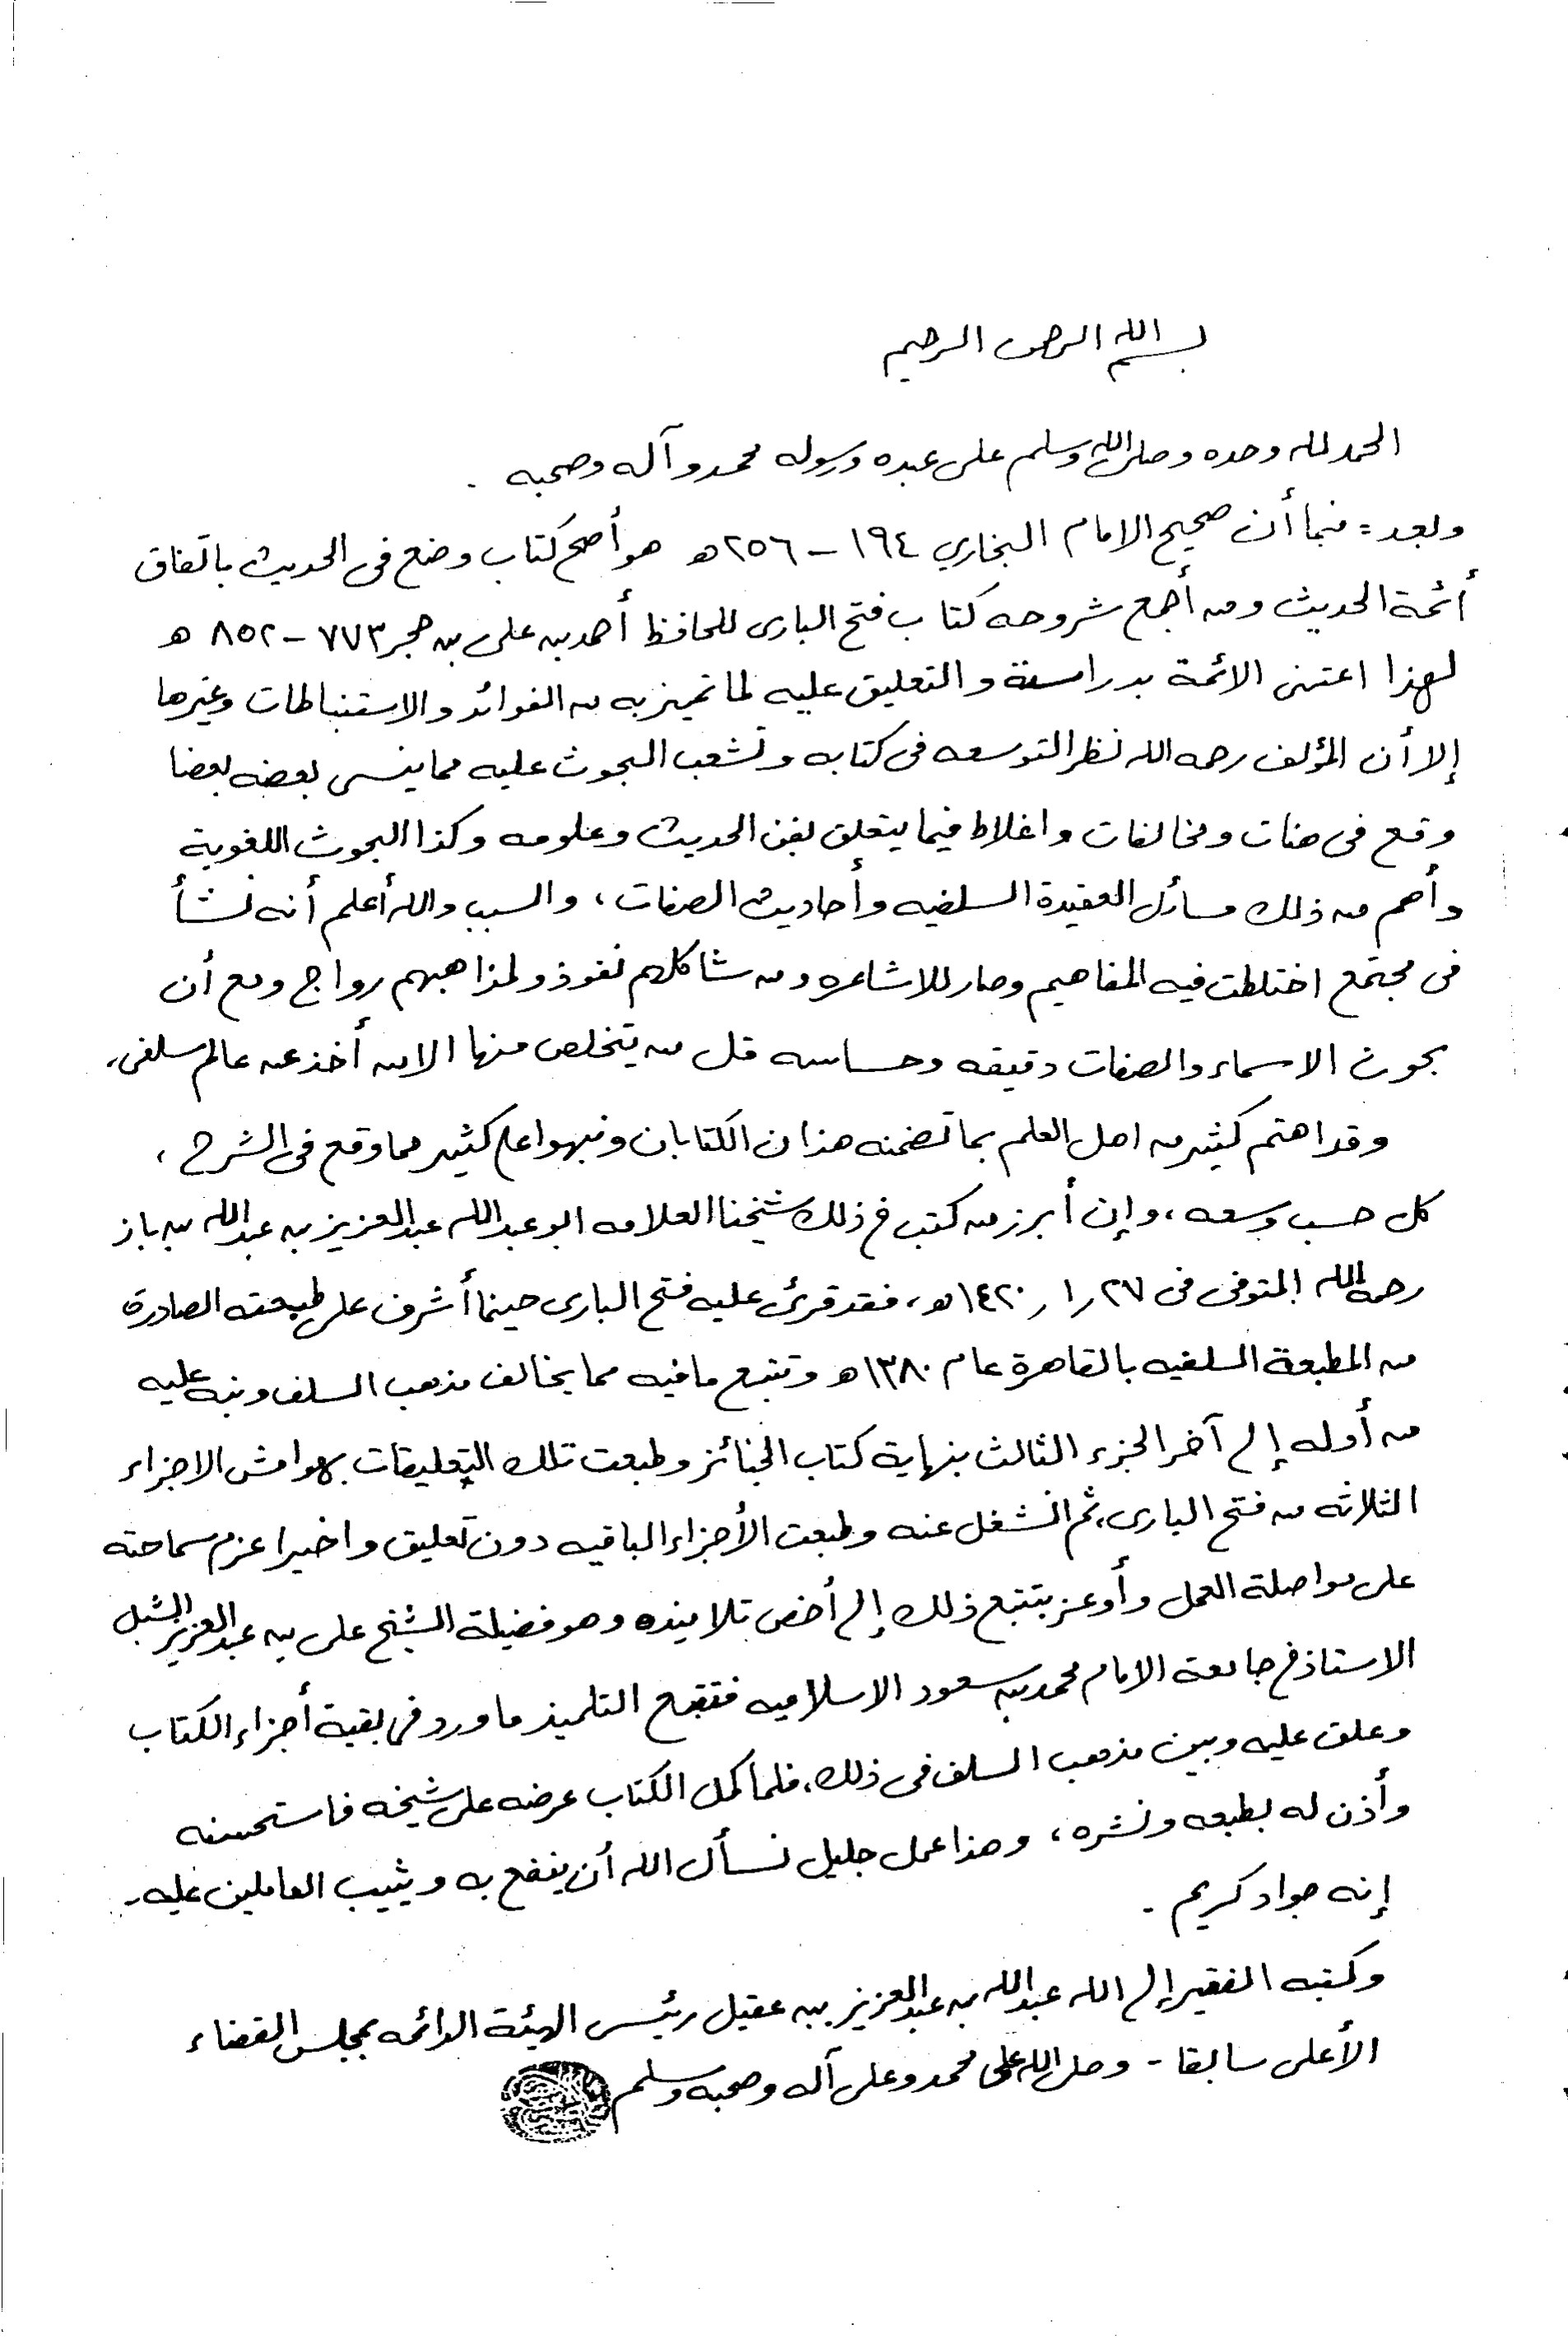 بسم الله الرحمن الرحيم
الحمد لله وحده وصلى الله وسلم على عبده ورسوله محمد وآله وصحبه .
وبعد : فبما أن صحيح الامام البخاري ١٩٤ - ٢٥٦ هـ هو أصح كتاب وضع في الحديث باتفاق
أئمة الحديث ومن أجمع شروحه كتاب فتح البارى للحافظ أحمد بن على بن حجر ٧٧٣ - ٨٥٢ هـ
لهذا اعتنى الائمة بدراسته والتعليق عليه لما تميز به من الفوائد والاستنباطات وغيرها
إلا أن المؤلف رحمه الله نظرا لتوسعه فى كتابه وتشعب البحوث عليه مما ينسى بعضه بعضا
وقع فى هنات ومخالفات واغلاط فيما يتعلق بفن الحديث وعلومه وكذا البحوث اللغوية
وأهم من ذلك مسائل العقيدة السلفيه وأحاديث الصفات ، والسبب والله أعلم أنه نشأ
فى مجتمع اختلطت فيه المفاهيم وصار للاشاعره ومن شاكلهم نفوذ ولمذاهبهم رواج ومع أن
بحوث الاسماء والصفات دقيقه وحساسه قل من يتخلص منها الا من أخذ عن عالم سلفى .
وقد اهتم كثير من اهل العلم بما تضمنه هذان الكتابان ونبهوا على كثير مما وقع فى الشرح ،
كل حسب وسعه ، وإن أبرز من كتب في ذلك شيخنا العلامه ابو عبدالله عبدالعزيز بن عبدالله بن باز
رحمه الله المتوفى فى ٢٧ ر ١ ر ١٤٢٠ هـ ، فقد قرئ عليه فتح البارى حينما أشرف على طبعته الصادرة
من المطبعة السلفيه بالقاهرة عام ١٣٨٠ هـ وتتبع مافيه مما يخالف مذهب السلف ونبه عليه
من أوله إلى آخر الجزء الثالث بنهاية كتاب الجنائز وطبعت تلك التعليقات بهوامش الاجزاء
الثلاثه من فتح البارى ، ثم انشغل عنه وطبعت الأجزاء الباقيه دون تعليق واخيرا عزم سماحته
على مواصلة العمل وأوعز بتتبع ذلك إلى أخص تلاميذه وهو فضيلة الشيخ على بن عبدالعزيز الشبل
الاستاذ في جامعة الامام محمد بن سعود الاسلاميه فتتبع التلميذ ماورد فى بقية أجزاء الكتاب
وعلق عليه وبين مذهب السلف فى ذلك ، فلما كمل الكتاب عرضه على شيخه فاستحسنه
وأذن له بطبعه ونشره ، وهذا عمل جليل نسأل الله أن ينفع به ويثيب العاملين عليه .
إنه جواد كريم .
وكتبه الفقير إلى الله عبدالله بن عبدالعزيز بن عقيل رئيس الهيئة الدائمه بمجلس القضاء
الأعلى سابقا - وصلى الله على محمد وعلى آله وصحبه وسلم